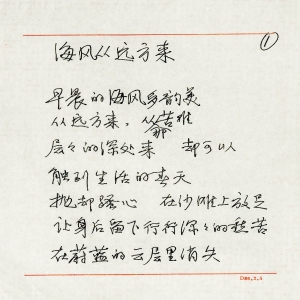 ①
海风从远方来
早晨的海风多韵美
从远方来,从苦难
那
层々的深处来 却可以
触到生活的春天
抛却骚心 在沙滩上放足
让身后留下行行深々的愁苦
在蔚蓝的云层里消失